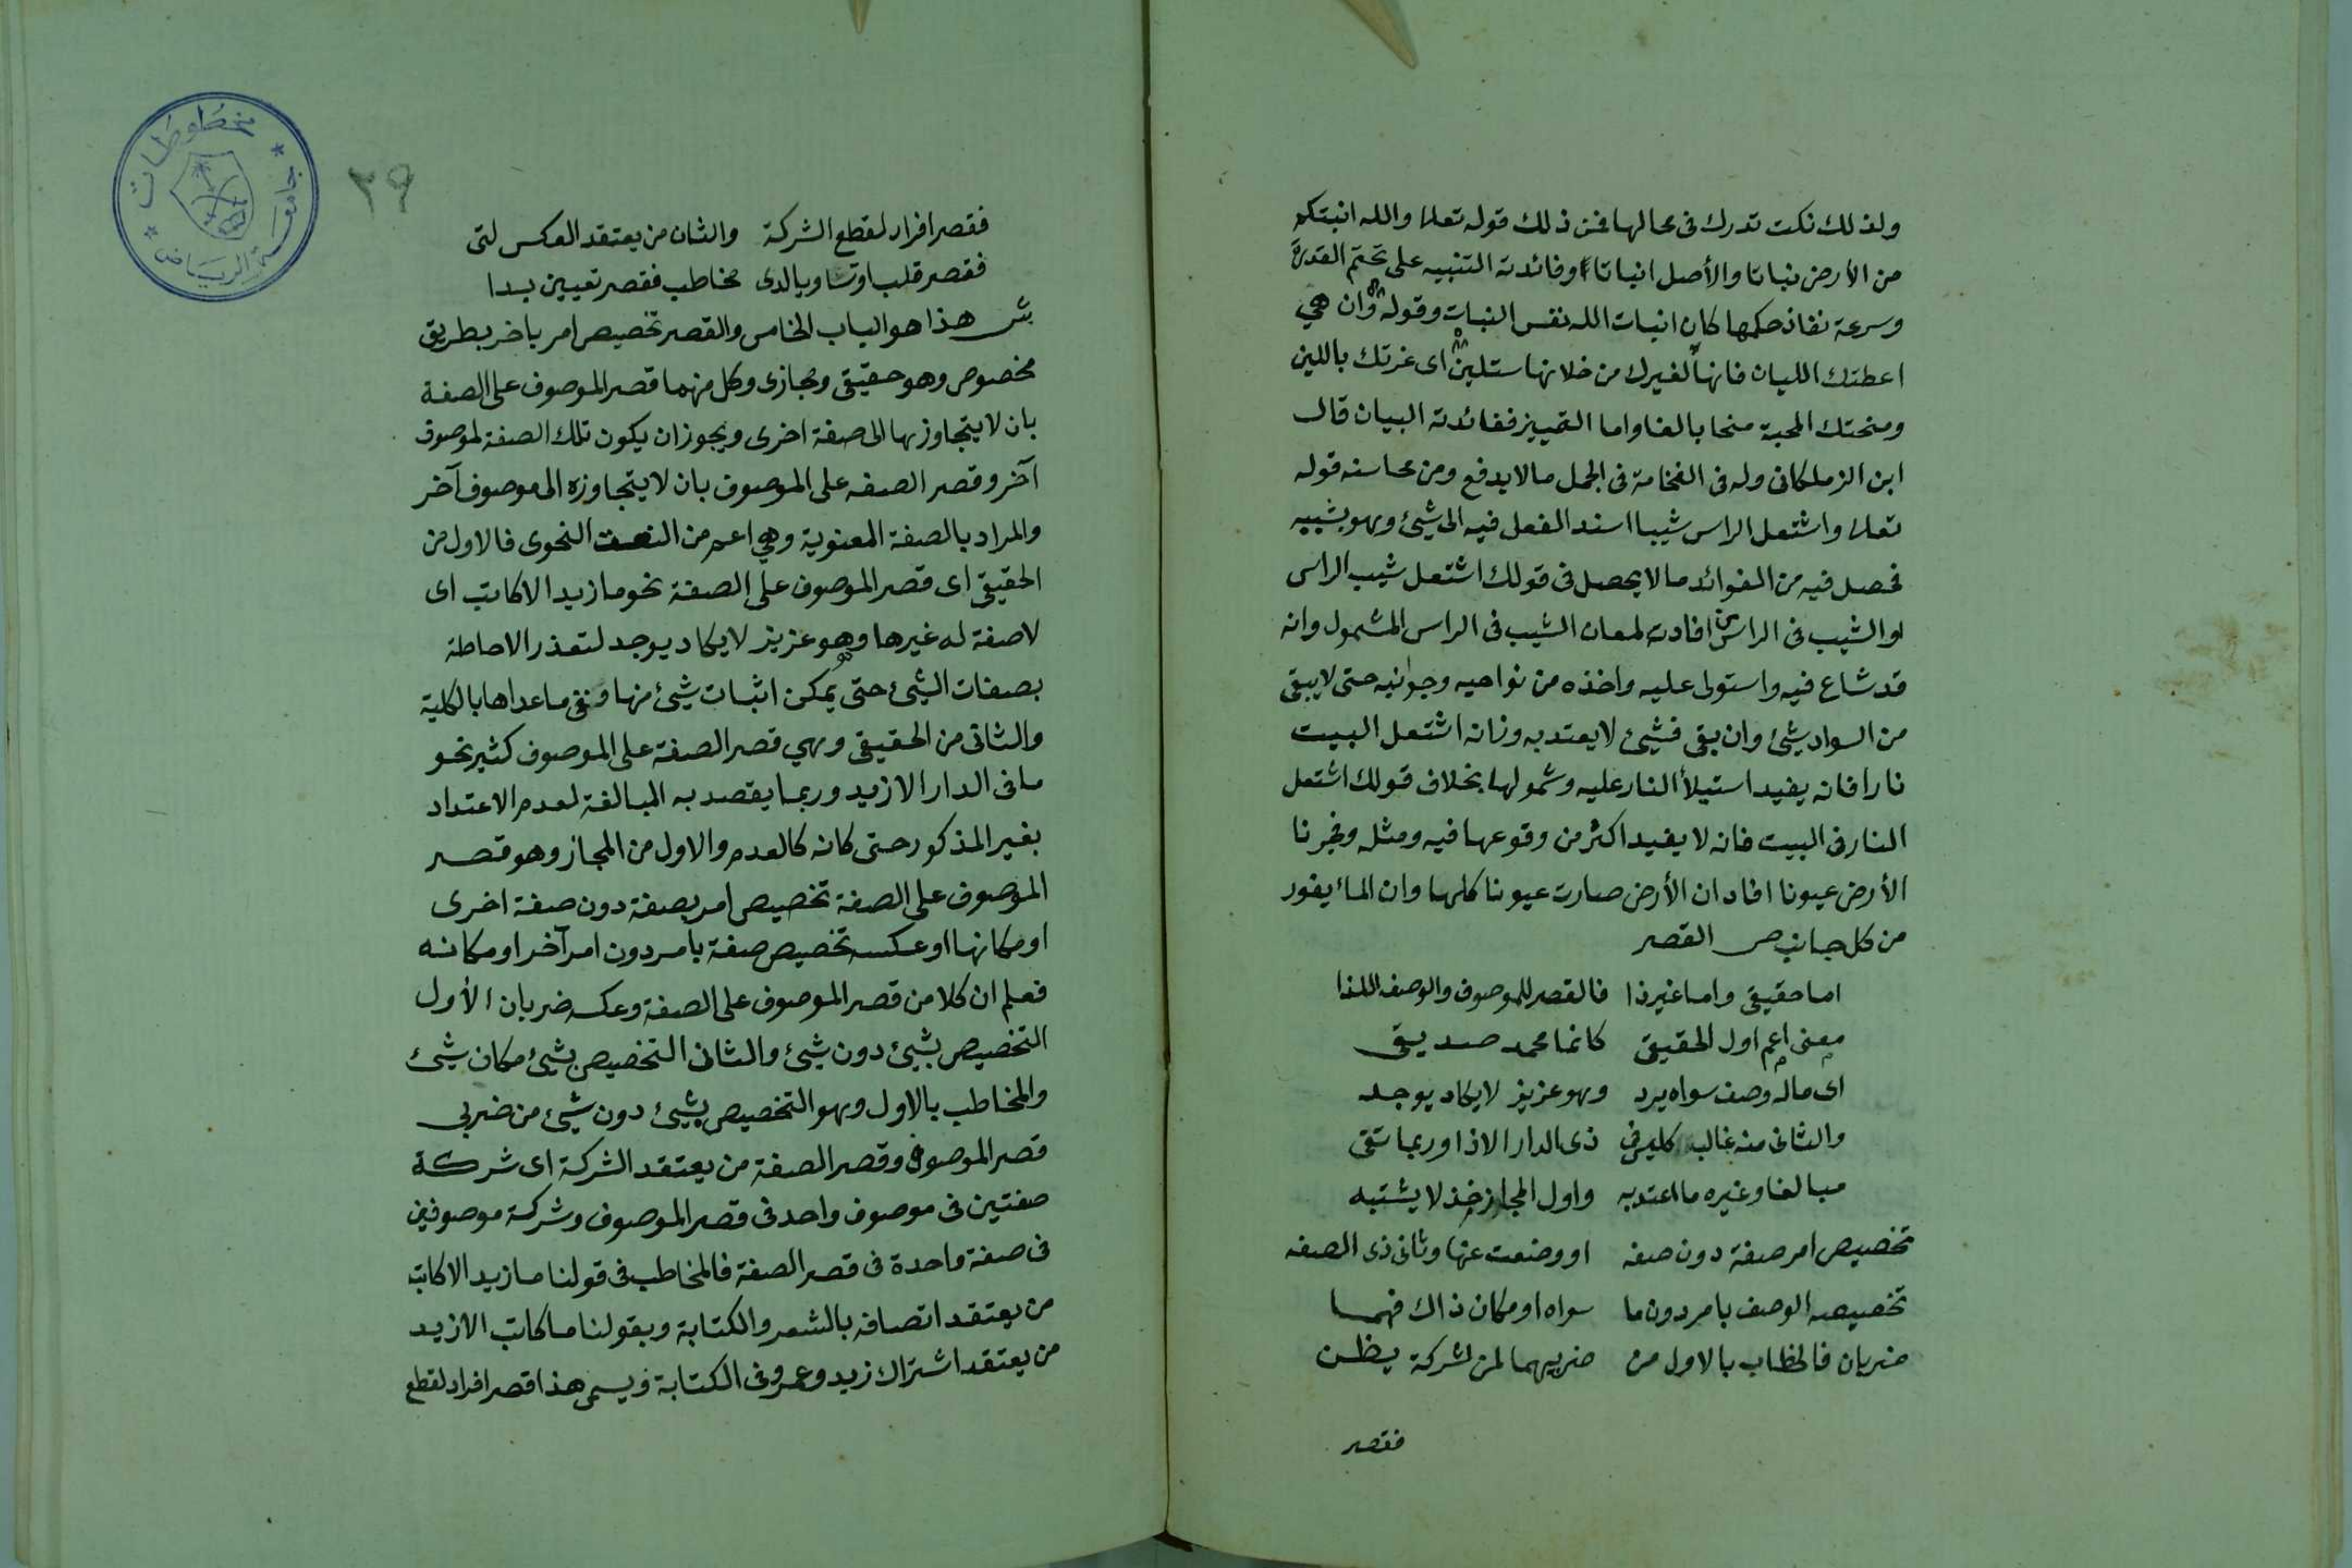 ولذلك نكت تدرك فى محالها فمن ذلك قوله تعالى والله انبتكم
من الأرض نباتا والأصل انباتا وفائدته التنبيه على تحتم القدرة
وسرعة نفاذ حكمها كان انبات الله نفس النبات وقوله وان هي
اعطتك الليان فانها لغيرك من خلانها ستلين اى غرتك باللين
ومنحتك المحبة منحا بالغا واما التمييز ففائدته البيان قال
ابن الزملكانى وله فى الفخامة فى الجمل مالا يدفع ومن محاسنه قوله
تعالى واشتعل الراس شيبا اسند الفعل فيه الى شيئ وهو بشبيه
فحصل فيه من الفوائد مالا يحصل فى قولك اشتعل شيب الراس
او الشيب فى الراس افادته لمعان الشيب فى الراس المشمول وانه
قد شاع فيه واستولى عليه واخذه من نواحيه وجوانبه حتى لا يبقى
من السواد شيئ وان بقى فشيئ لا يعتد به وزانه اشتعل البيت
نارا فانه يفيد استيلأ النار عليه وشمولها بخلاف قولك اشتعل
النار فى البيت فانه لا يفيد اكثر من وقوعها فيه ومثله وفجرنا
الأرض عيونا افاد ان الأرض صارت عيونا كلها وان المأ يفور
من كل جانب ص القصر
اما حقيقى واما غير ذا فالقصر للموصوف والوصف اللذا
معنى اعم اول الحقيقى كانما محمد صديقى
اى ماله وصف سواه يرد وهو عزيز لا يكاد يوجد
والثانى منه غالب كليس فى ذى الدار الا ذا وربما تقى
مبالغا وغيره ما اعتد به واول المجاز خذ لا يشتبه
تخصيص امر صفة دون صفه او وضعت عنها وثانى ذى الصفه
تخصيصه الوصف بامر دون ما سواه او مكان ذاك فهما
ضربان فالخطاب بالاول من ضربيهما لمن لشركة يظن
فقصر
٢٩
فقصر افراد لقطع الشركة والثان من يعتقد العكس لتى
فقصر قلب او تساويا لدى مخاطب فقصر تعيين بدا
ش هذا هو الباب الخامس والقصر تخصيص امر باخر بطريق
مخصوص وهو حقيقى ومجازى وكل منهما قصر الموصوف على الصفة
بان لا يتجاوزها الى صفة اخرى ويجوز ان يكون تلك الصفة لموصوف
آخر وقصر الصفه على الموصوف بان لا يتجاوزه الى موصوف آخر
والمراد بالصفة المعنوية وهي اعم من النعت النحوى فالاول من
الحقيقى اى قصر الموصوف على الصفة نحو ما زيد الا كاتب اى
لا صفة له غيرها وهو عزيز لا يكاد يوجد لتعذر الاحاطة
بصفات الشيئ حتى يمكن اثبات شيئ منها ونفى ما عداها بالكلية
والثانى من الحقيقى وهي قصر الصفة على الموصوف كثير نحو
ما فى الدار الا زيد وربما يقصد به المبالغة لعدم الاعتداد
بغير المذكور حتى كانه كالعدم والاول من المجاز وهو قصر
الموصوف على الصفة تخصيص امر بصفة دون صفة اخرى
او مكانها او عكسه تخصيص صفة بامر دون امر آخر او مكانه
فعلم ان كلا من قصر الموصوف على الصفة وعكسه ضربان الأول
التخصيص بشيئ دون شيئ والثانى التخصيص بشيئ مكان شيئ
والمخاطب بالاول وهو التخصيص بشيئ دون شيئ من ضربى
قصر الموصوف وقصر الصفة من يعتقد الشركة اى شركة
صفتين فى موصوف واحد فى قصر الموصوف وشركة موصوفين
فى صفة واحدة فى قصر الصفة فالمخاطب فى قولنا ما زيد الا كاتب
من يعتقد اتصافه بالشعر والكتابة وبقولنا ما كاتب الا زيد
من يعتقد اشتراك زيد وعمرو فى الكتابة ويسمى هذا قصر افراد لقطع
مخطوطات
جامعة الرياض